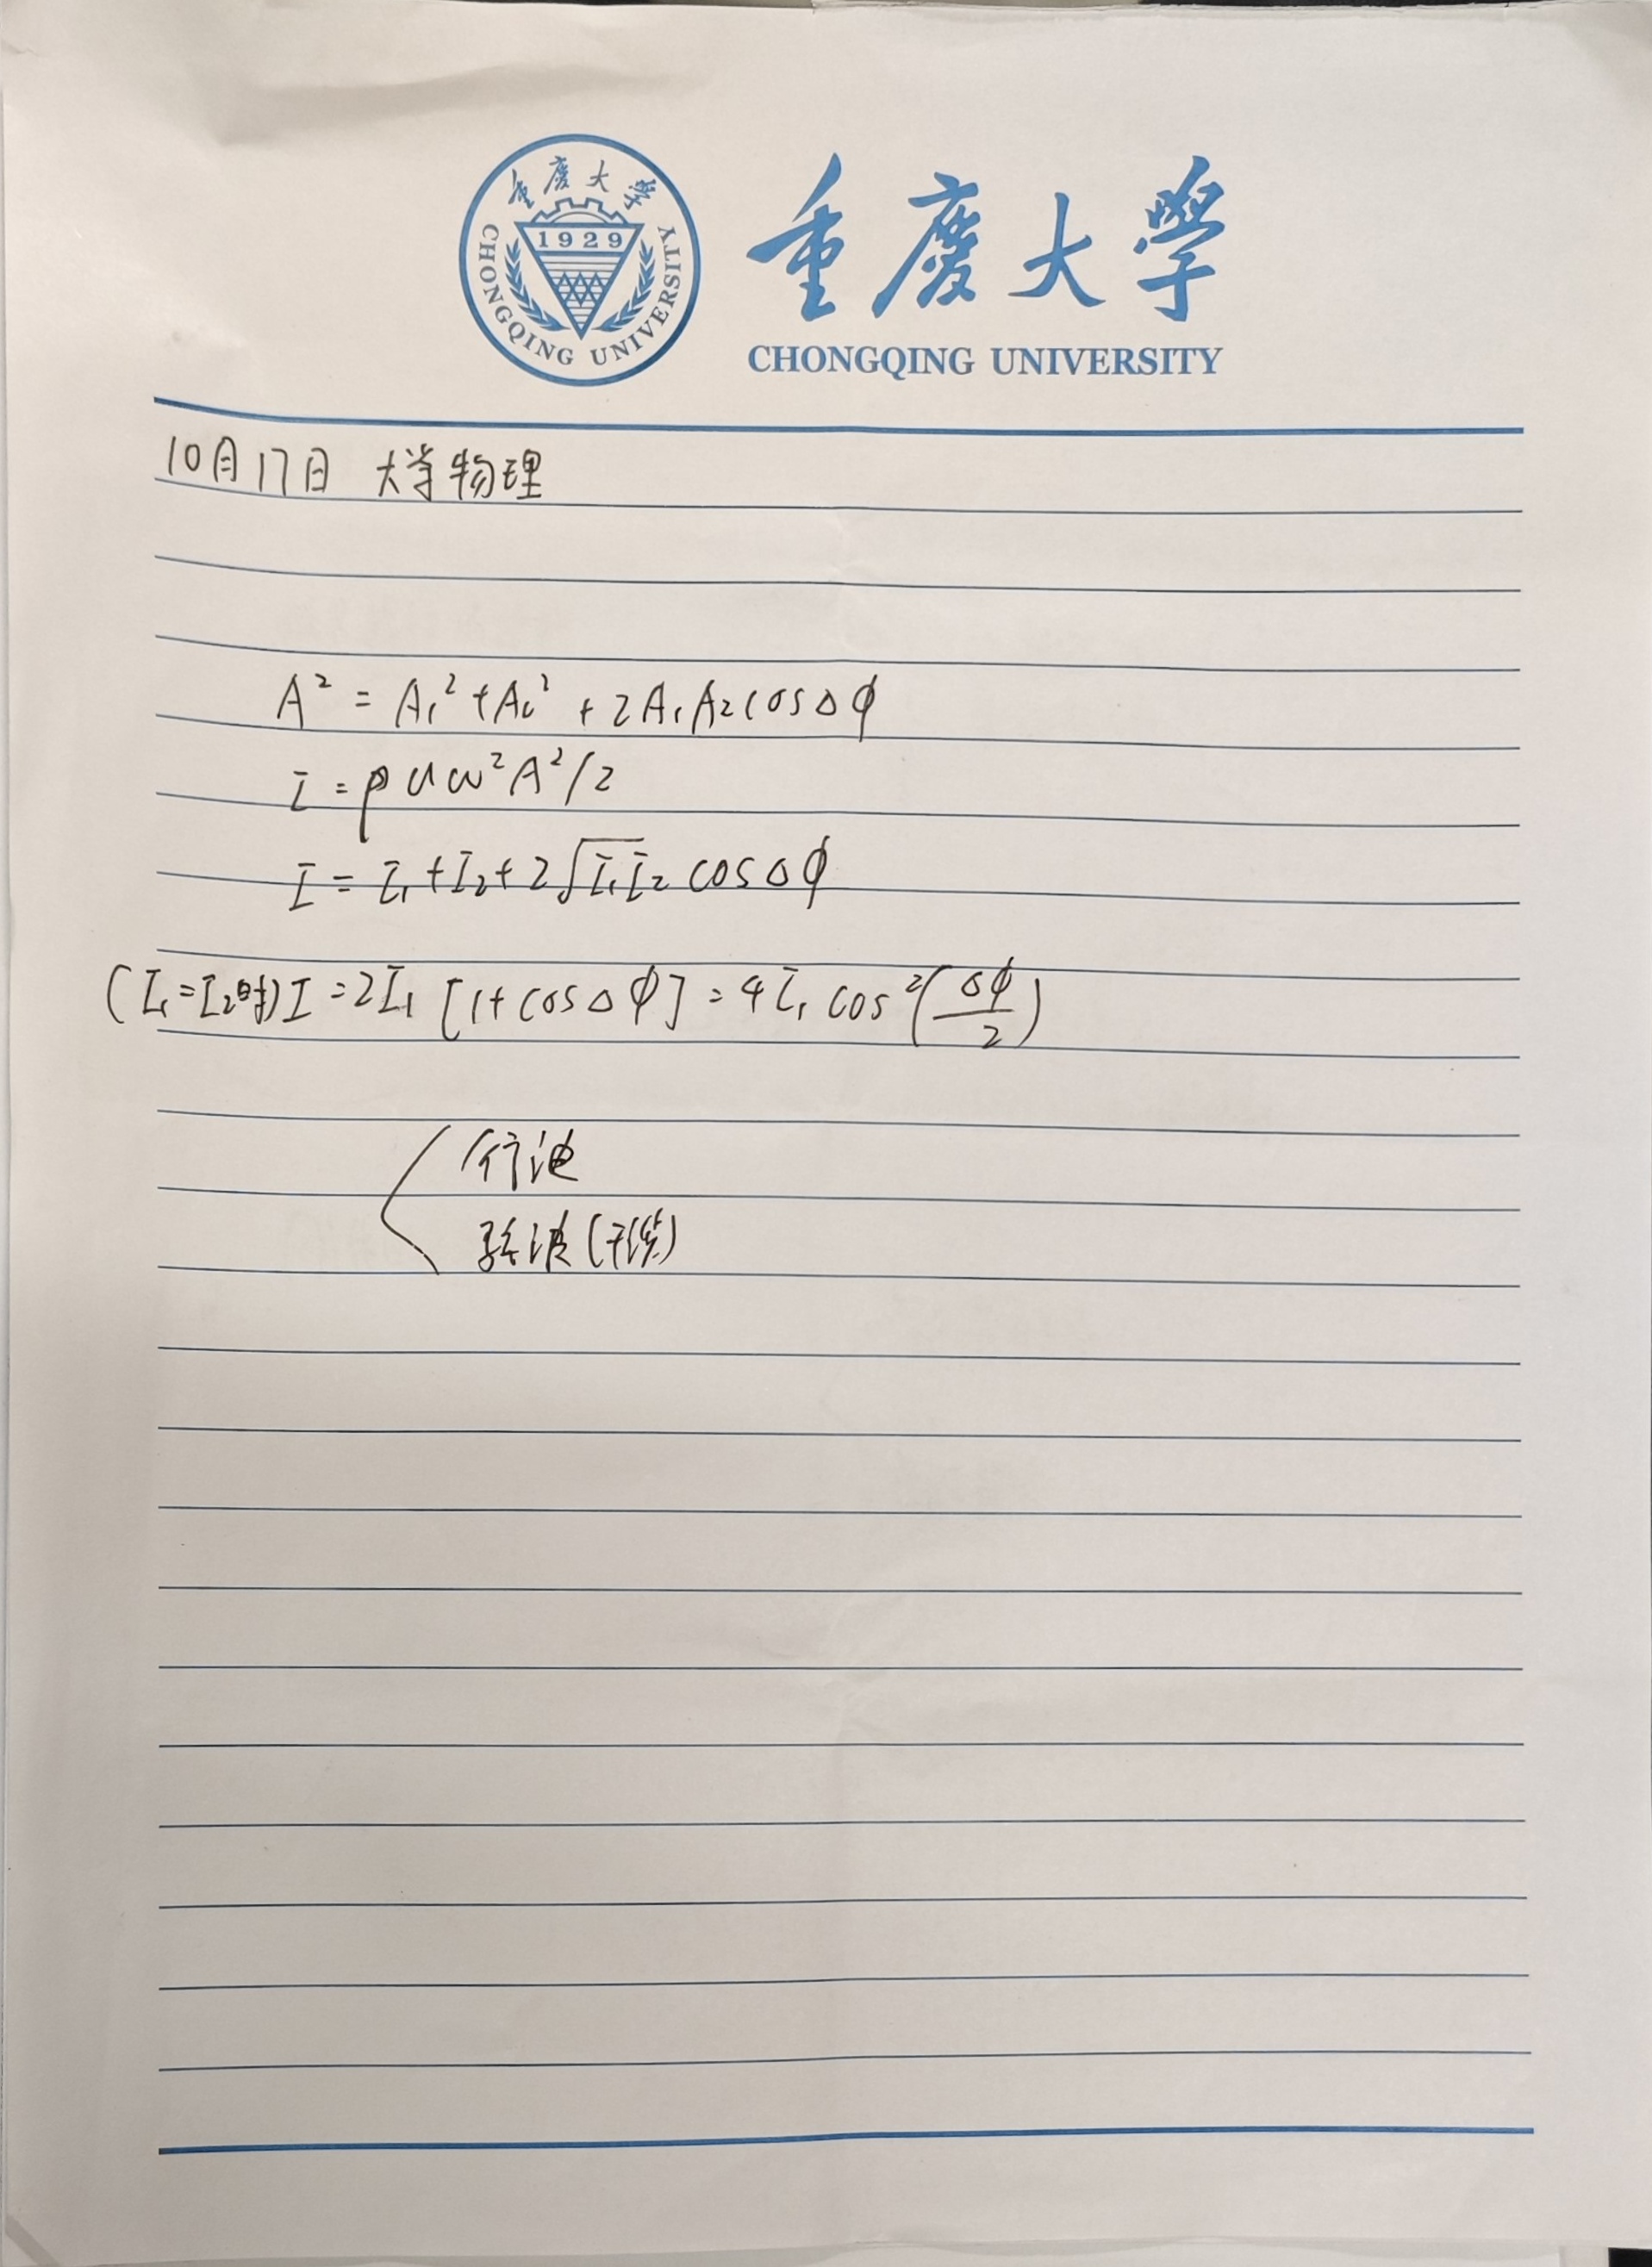 重慶大學
1929
CHONGQING UNIVERSITY
重慶大學
CHONGQING UNIVERSITY
10月17日 大学物理
A² = A₁² + A₂² + 2A₁A₂cosΔφ
I = ρuω²A²/2
I = I₁ + I₂ + 2√I₁I₂ cosΔφ
(I₁=I₂时) I = 2I₁ [1+cosΔφ] = 4I₁ cos²(Δφ/2)
行波
驻波(干涉)